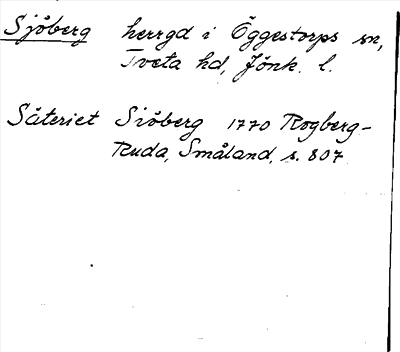 Sjöberg herrgd i Öggestorps sn,
Tveta hd, Jönk. l.
Säteriet Siöberg 1770 Rogberg-
Ruda, Småland, s. 807